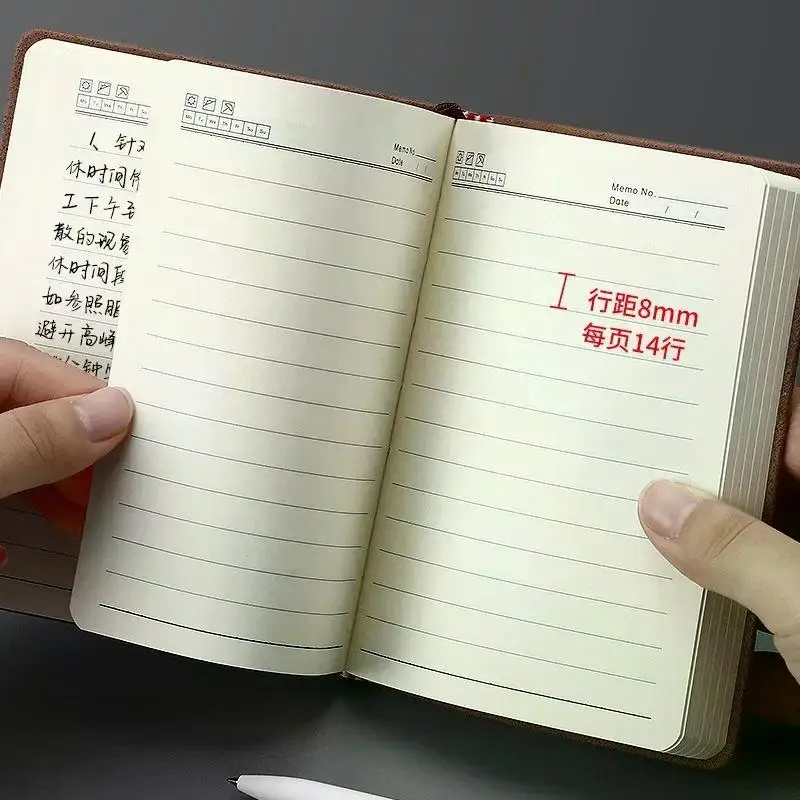 Mo Tu We Th Fr Sa
人 针对
休时间作
工下午至
散的现象
休时间段
如参照服
避开高峰
分钟
Mo Tu We Th Fr Sa Su
Memo No.
Date / /
Mo Tu We Th Fr Sa Su
Memo No.
Date / /
行距8mm
每页14行